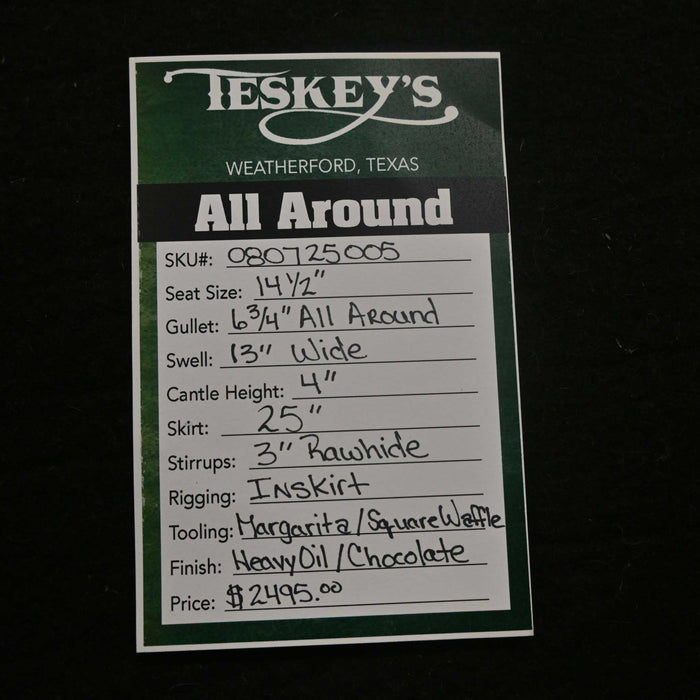 TESKEY'S
WEATHERFORD, TEXAS
All Around
SKU#: 080725005
Seat Size: 14 1/2"
Gullet: 6 3/4" All Around
Swell: 13" Wide
Cantle Height: 4"
Skirt: 25"
Stirrups: 3" Rawhide
Rigging: INSKirt
Tooling: Margarita/Square Waffle
Finish: Heavy Oil/Chocolate
Price: $2495.00